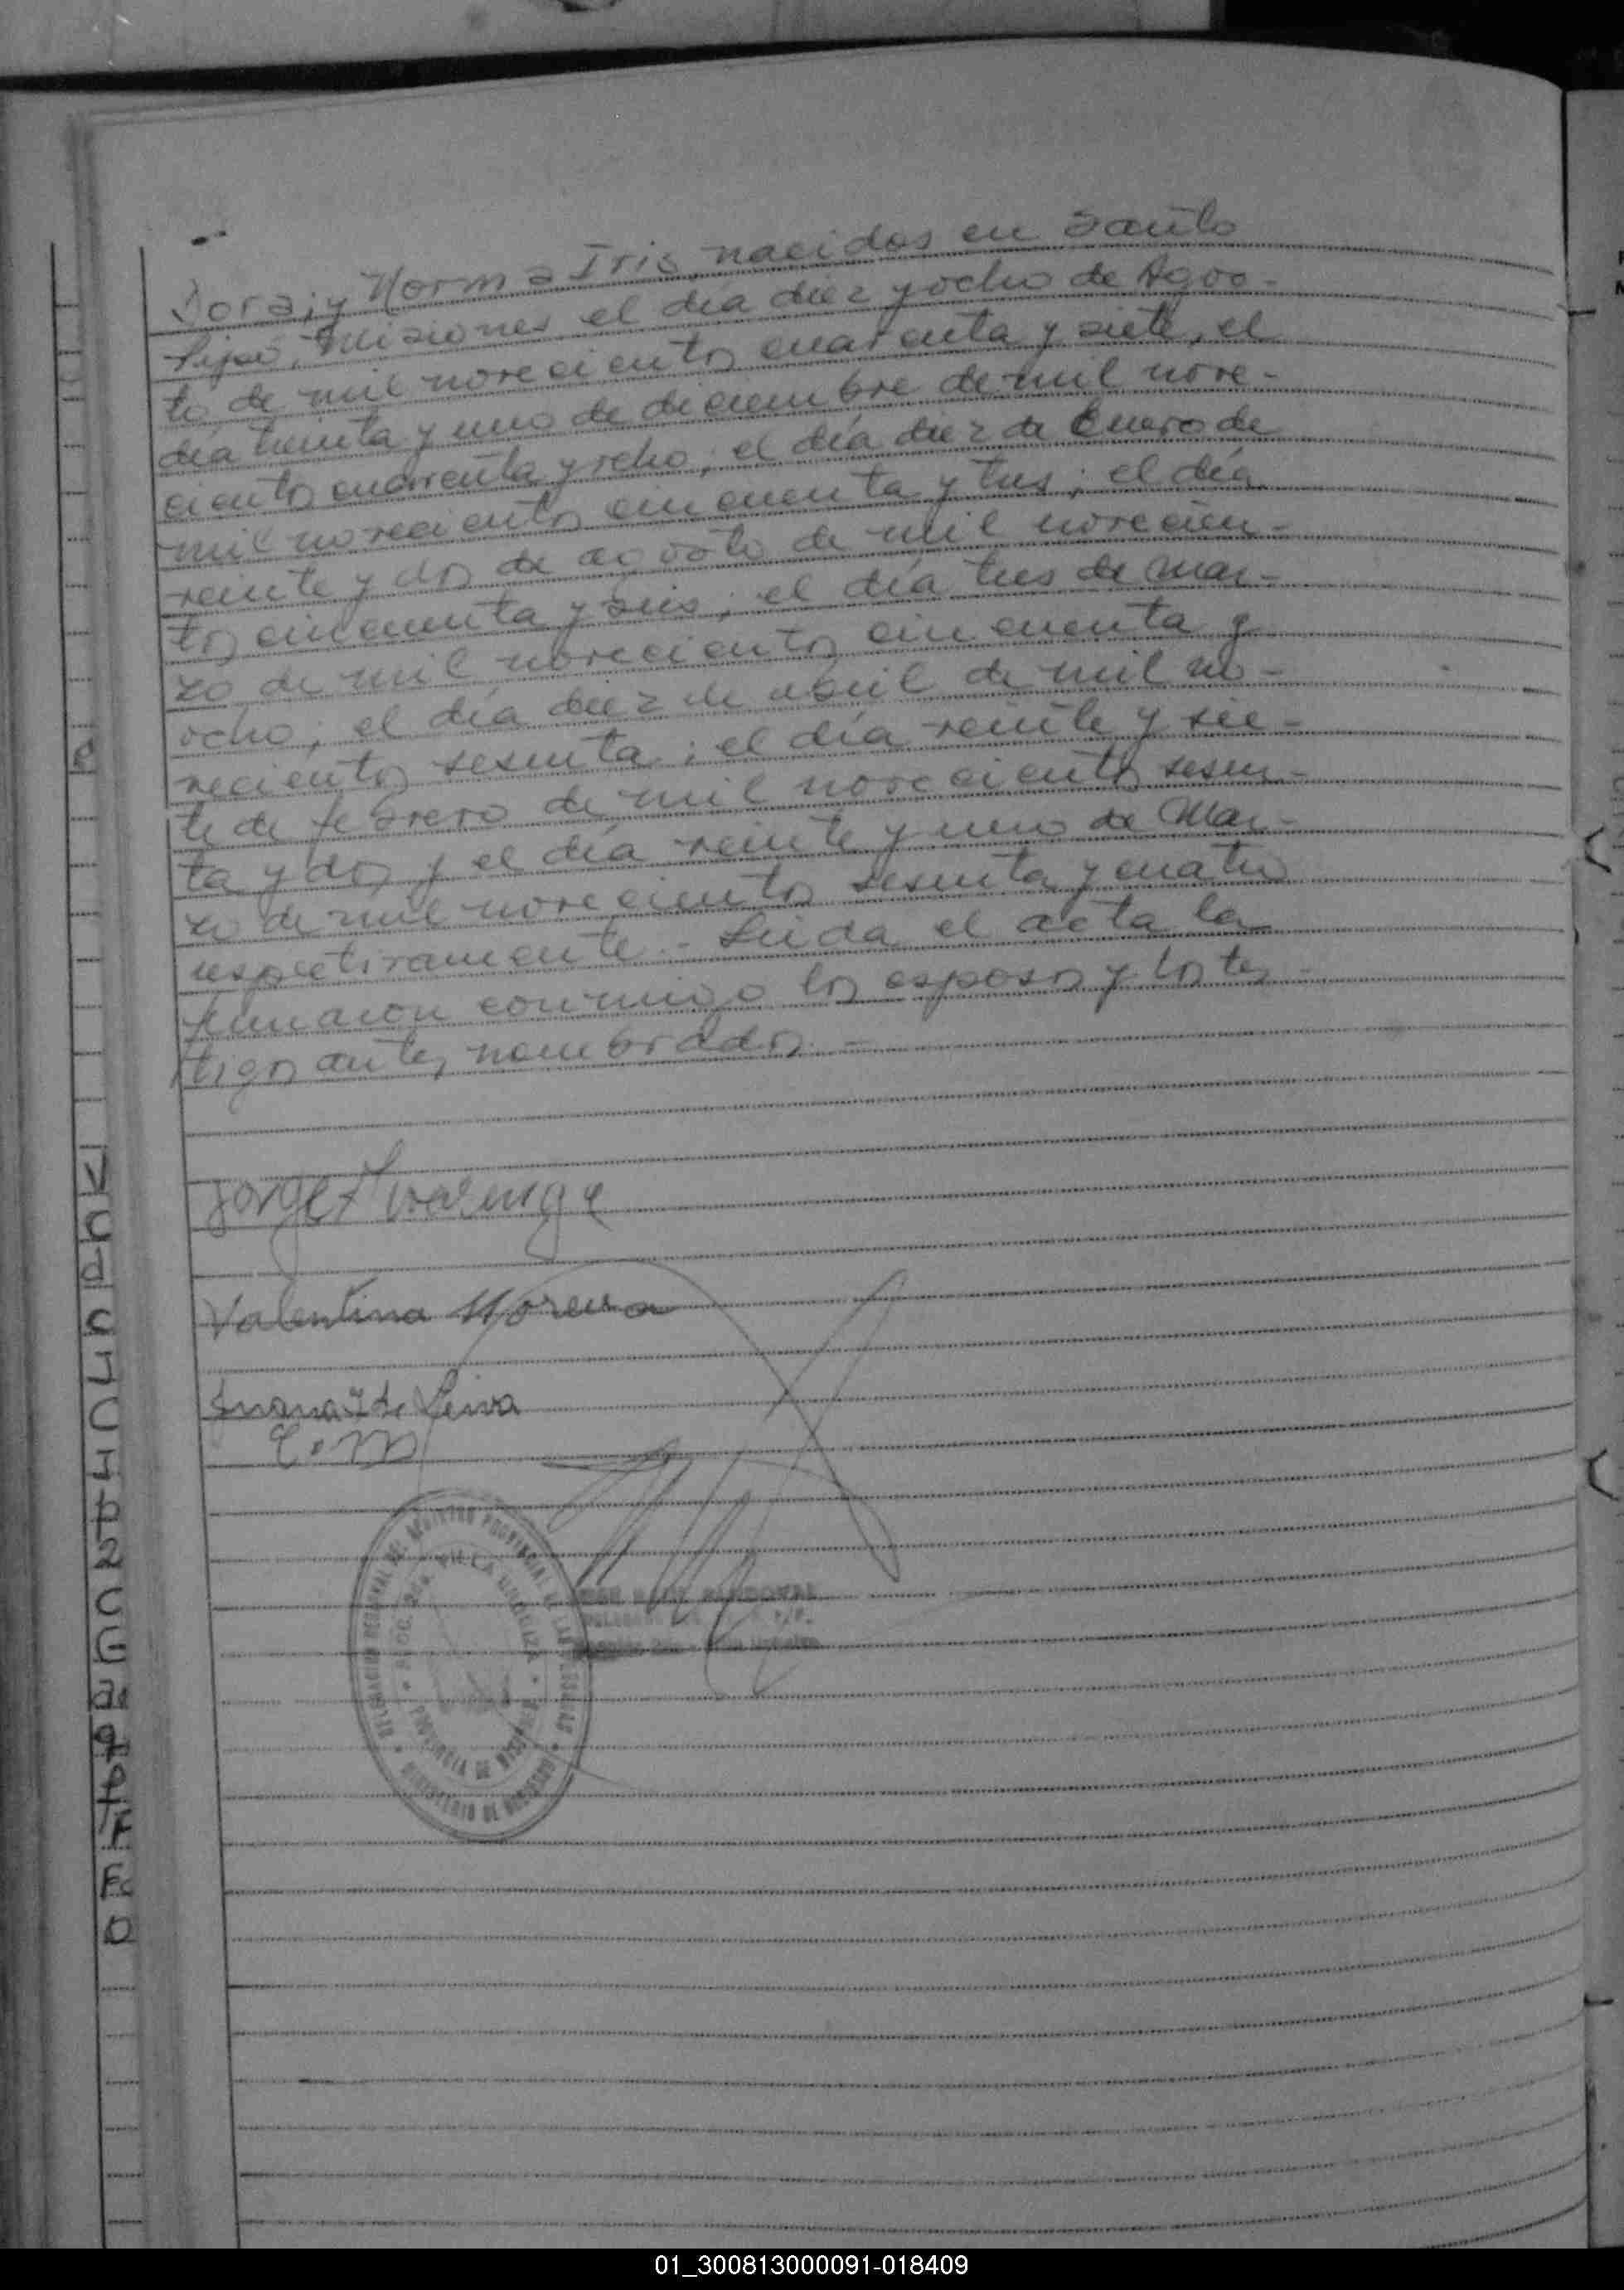 Dora; y Norma Iris, nacidos en Santo
Pipó, Misiones el día diez y ocho de Agos-
to de mil novecientos cuarenta y siete, el
día treinta y uno de diciembre de mil nove-
cientos cuarenta y ocho; el día diez de Enero de
mil novecientos cincuenta y tres; el día
veinte y dos de agosto de mil novecien-
tos cincuenta y seis; el día tres de mar-
zo de mil novecientos cincuenta y
ocho; el día diez de abril de mil no-
vecientos sesenta; el día veinte y sie-
te de febrero de mil novecientos sesen-
ta y dos y el día veinte y uno de Mar-
zo de mil novecientos sesenta y cuatro
respectivamente.- Leída el acta la
firmaron conmigo los esposos y los tes-
tigos antes nombrados.-
Valentina Morena
Juana de Leiva
DELEGACION REGIONAL DEL REGISTRO PROVINCIAL DE LAS PERSONAS
MINISTERIO DE GOBIERNO
SECC. 2da. VILLA URQUIZA
PROVINCIA DE MISIONES
RAUL SANDOVAL
01_300813000091-018409